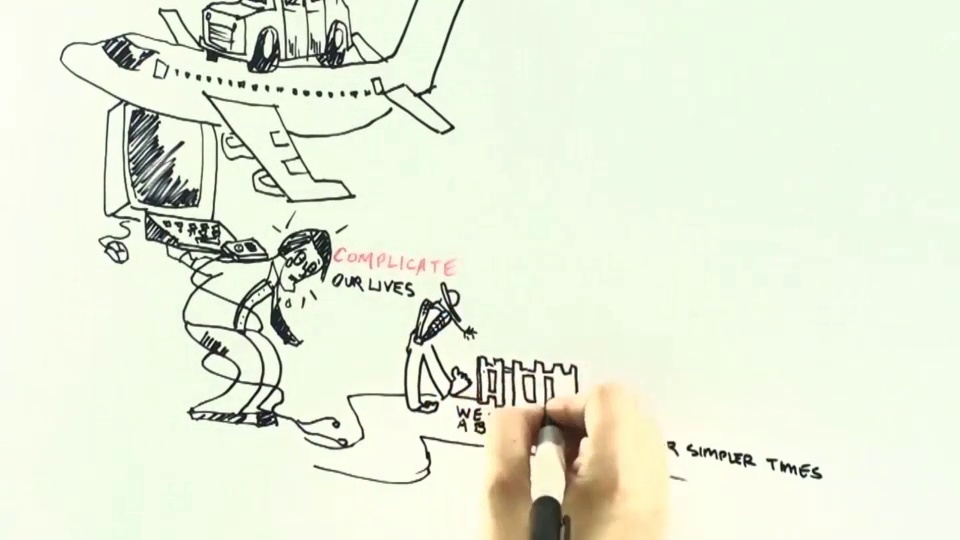 COMPLICATE
OUR LIVES
WE
A B
SIMPLER TIMES